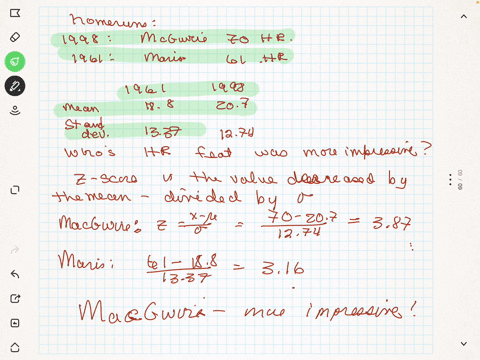 Homeruns:
1998: McGwrie 70 HR.
1961: Maris 61 HR
1961 1998
mean 18.8 20.7
Stand dev. 13.37 12.74
Who's HR feat was more impressive?
Z-score is the value decreased by
the mean - divided by σ
MacGwire: z = x-μ/σ = 70-20.7/12.74 = 3.87
Maris: 61-18.8/13.37 = 3.16
MacGwire - more impressive!